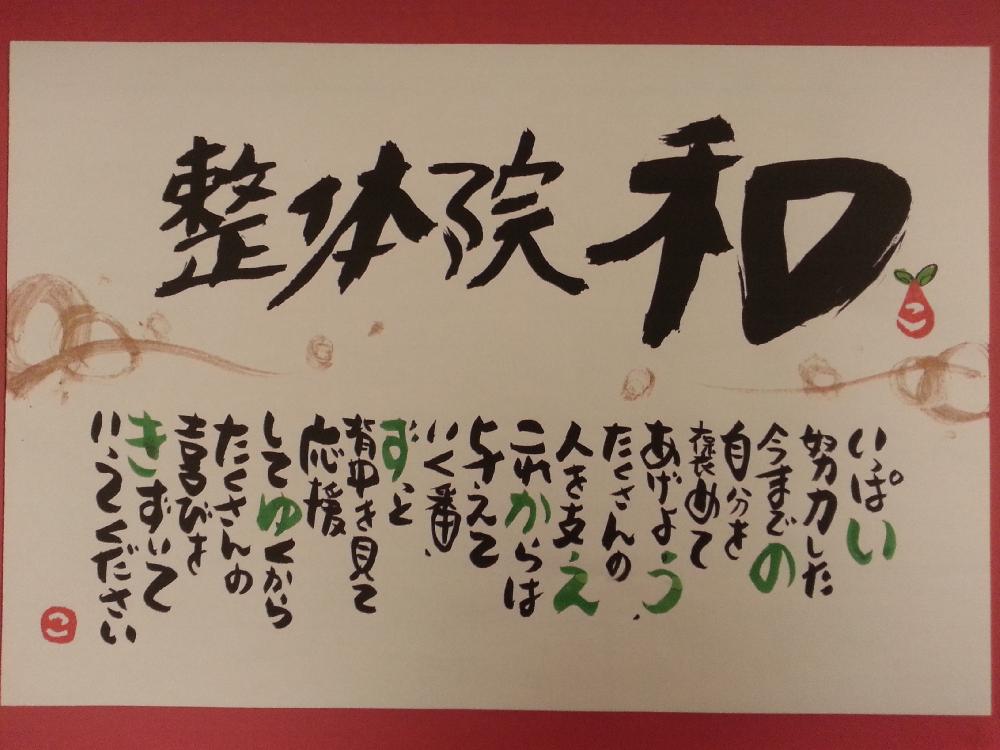 整体院 和
こ
いっぱい
努力した
今までの
自分を
褒めて
あげよう
たくさんの
人を支え
これからは
与えて
いく番、
ずっと
背中を見て
応援
してゆくから
たくさんの
喜びを
きずいて
いってください
こ